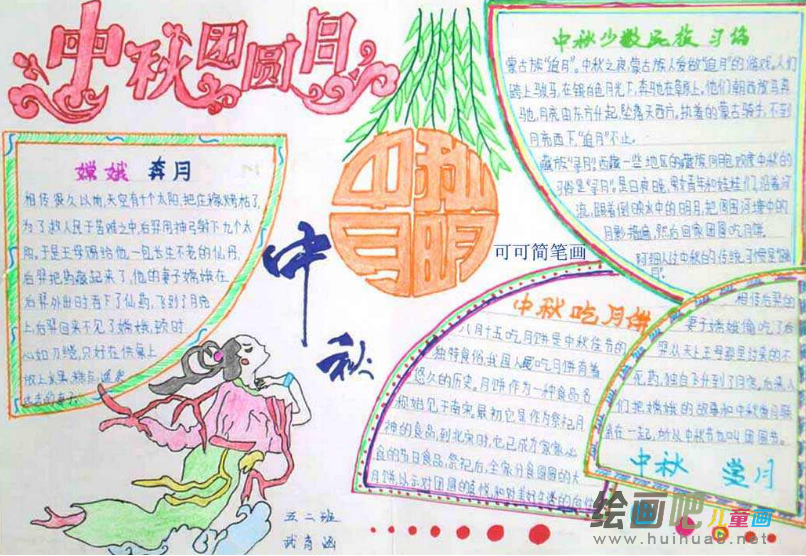 中秋团圆月
嫦娥 奔月
相传很久以前,天空有十个太阳,把庄稼烤枯了,
为了救人民于苦难之中后羿用神弓射下九个太
阳。于是王母赐给他一包长生不老的仙丹,
后羿把药藏起来了,他的妻子嫦娥在
后羿外出时吞下了仙药,飞到了月宫
上后羿回来不见了嫦娥,顿时
心如刀绞,只好在供桌上
放上水果,糕点,遥寄
中秋月明
中
秋
可可简笔画
中秋少数民族习俗
蒙古族“追月”。中秋之夜,蒙古族人爱做“追月”的游戏。人们
跨上骏马,在银白色月光下,奔驰在草原上,他们朝西放马奔
驰,月亮由东方升起,坠落天西方,执着的蒙古骑手,不到
月亮西下,“追月”不止。
藏族“寻月”。西藏一些地区的藏族同胞欢度中秋的
习俗是“寻月”,是日夜晚,男女青年和娃娃们,沿着河
流,跟着倒映水中的明月,把周围河塘中的
月影 ,然后回家团圆吃月饼
中秋吃月饼
八月十五吃月饼是中秋佳节的
独特食俗,我国人民吃月饼有着
悠久的历史,月饼作为一种食品名
称如见于南宋,最初它是作为祭祀月
神的食品,到北宋时,它已成为家家
食的节日食品,祭祀后,全家分食圆圆的大
月饼,以示对团圆的喜悦
相传后羿的
妻子嫦娥偷吃了后
羿从天上王母那里讨来的不
死药,独自飞升到了月宫,后来人
们把嫦娥的故事和中秋赏月联
系在一起,所以中秋节也叫团圆节。
中秋 赏月
五二班
绘画吧 儿童画
www.huihua8.net